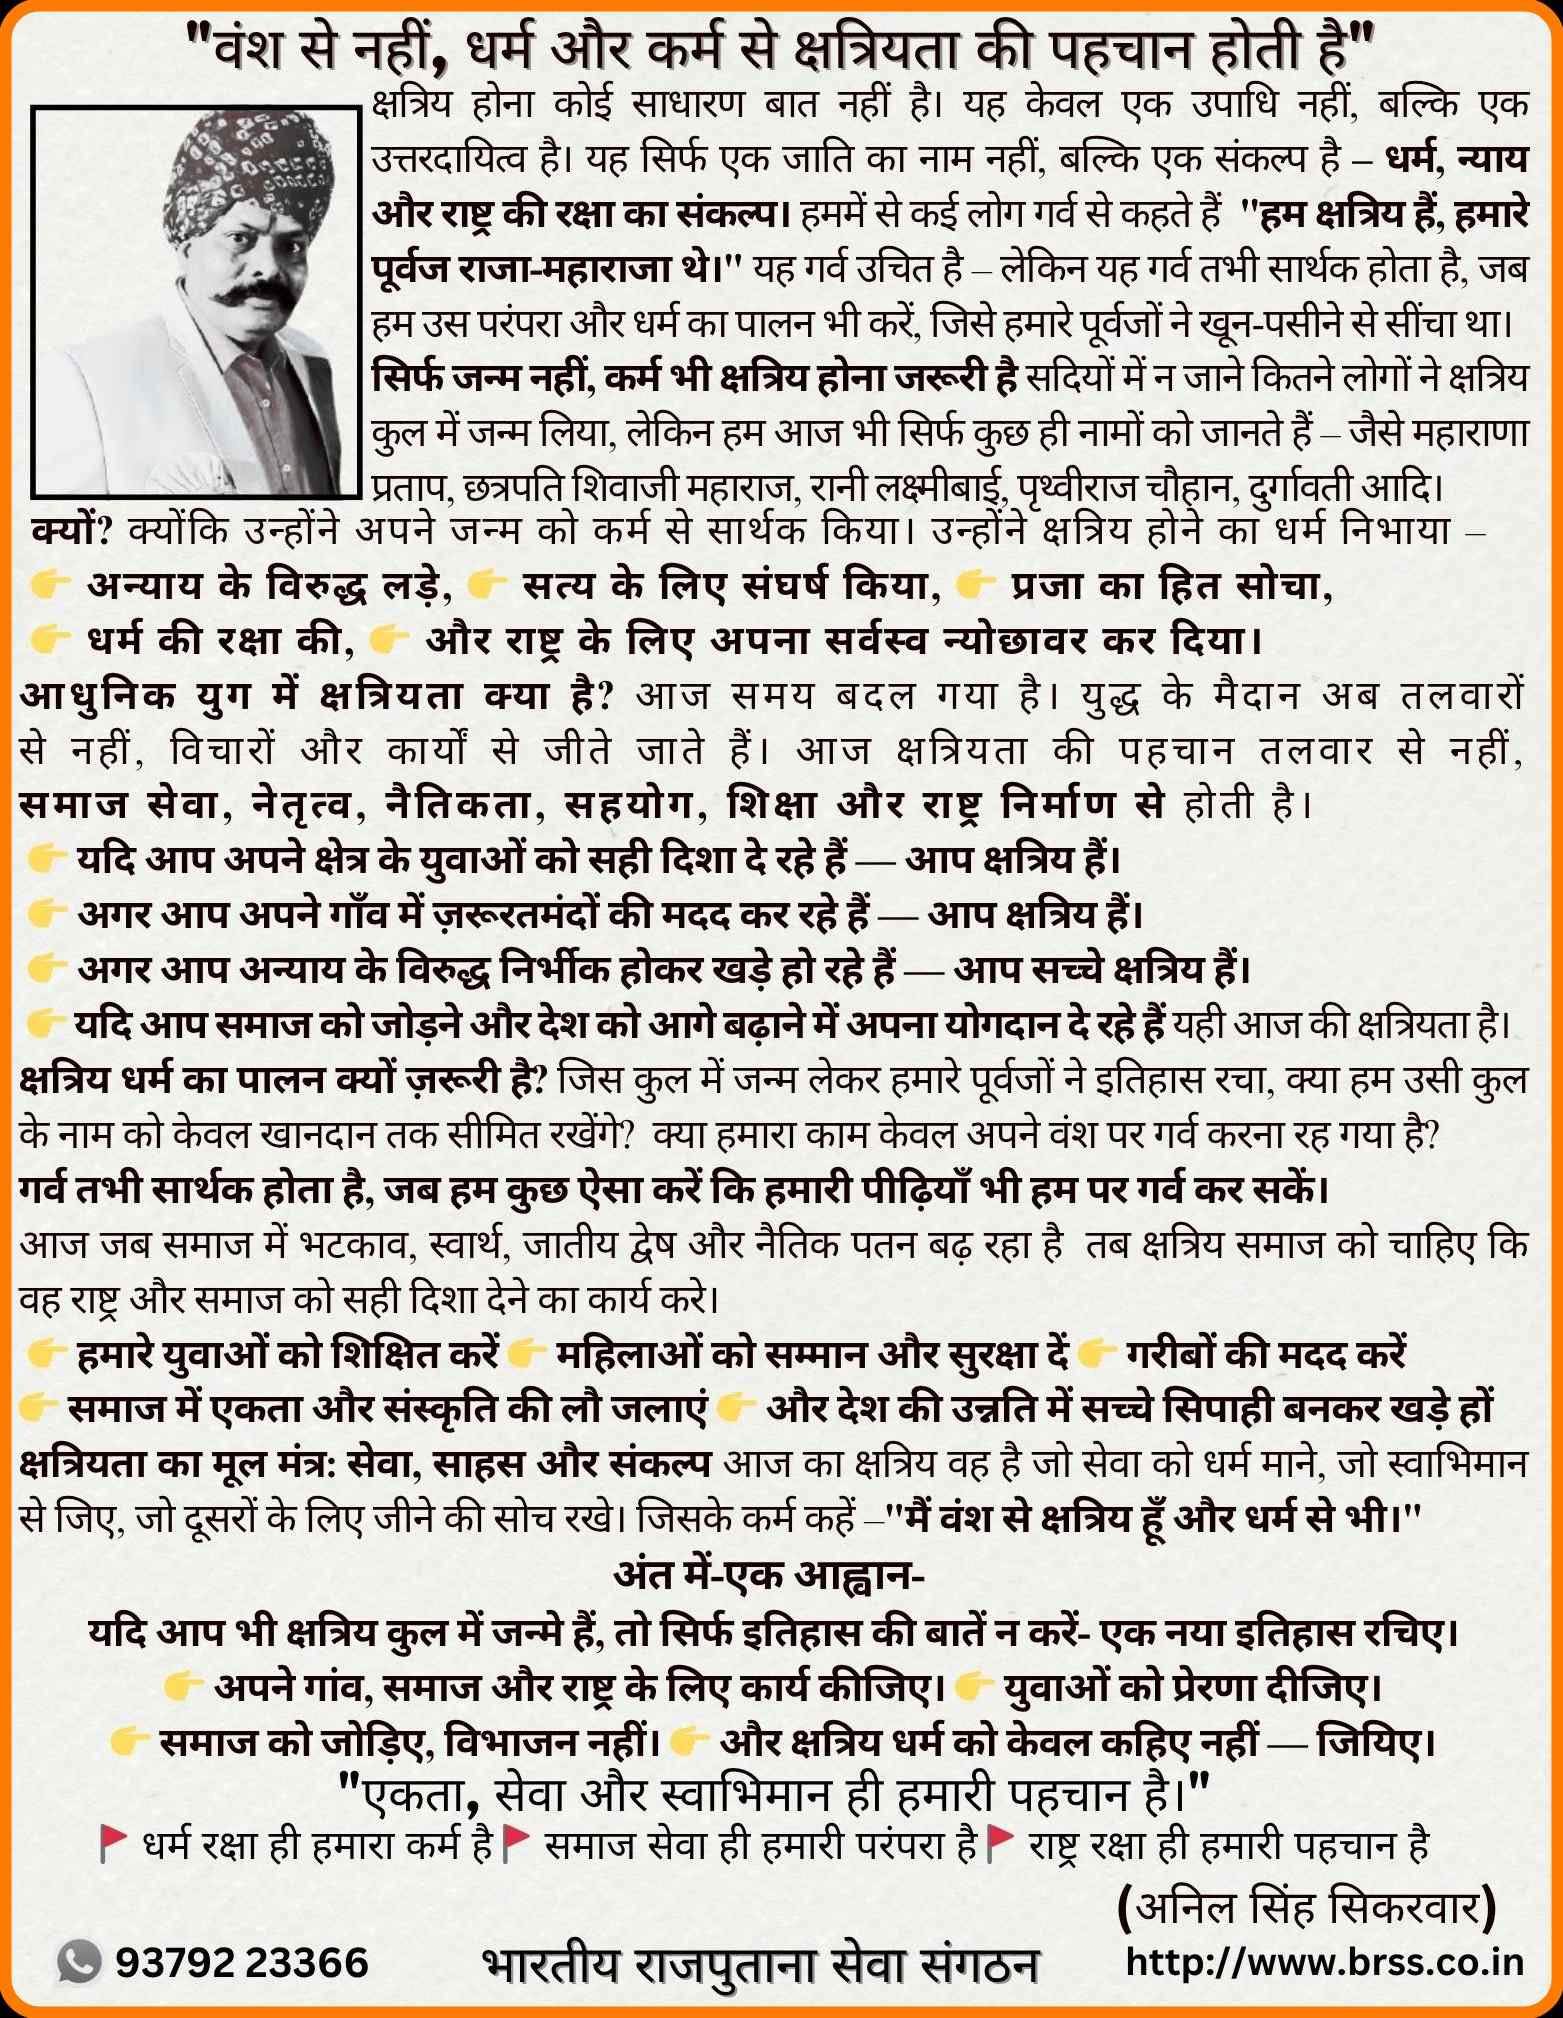 "वंश से नहीं, धर्म और कर्म से क्षत्रियता की पहचान होती है"
क्षत्रिय होना कोई साधारण बात नहीं है। यह केवल एक उपाधि नहीं, बल्कि एक
उत्तरदायित्व है। यह सिर्फ एक जाति का नाम नहीं, बल्कि एक संकल्प है – धर्म, न्याय
और राष्ट्र की रक्षा का संकल्प। हममें से कई लोग गर्व से कहते हैं "हम क्षत्रिय हैं, हमारे
पूर्वज राजा-महाराजा थे।" यह गर्व उचित है – लेकिन यह गर्व तभी सार्थक होता है, जब
हम उस परंपरा और धर्म का पालन भी करें, जिसे हमारे पूर्वजों ने खून-पसीने से सींचा था।
सिर्फ जन्म नहीं, कर्म भी क्षत्रिय होना जरूरी है सदियों में न जाने कितने लोगों ने क्षत्रिय
कुल में जन्म लिया, लेकिन हम आज भी सिर्फ कुछ ही नामों को जानते हैं – जैसे महाराणा
प्रताप, छत्रपति शिवाजी महाराज, रानी लक्ष्मीबाई, पृथ्वीराज चौहान, दुर्गावती आदि।
क्यों? क्योंकि उन्होंने अपने जन्म को कर्म से सार्थक किया। उन्होंने क्षत्रिय होने का धर्म निभाया –
👉 अन्याय के विरुद्ध लड़े, 👉 सत्य के लिए संघर्ष किया, 👉 प्रजा का हित सोचा,
👉 धर्म की रक्षा की, 👉 और राष्ट्र के लिए अपना सर्वस्व न्योछावर कर दिया।
आधुनिक युग में क्षत्रियता क्या है? आज समय बदल गया है। युद्ध के मैदान अब तलवारों
से नहीं, विचारों और कार्यों से जीते जाते हैं। आज क्षत्रियता की पहचान तलवार से नहीं,
समाज सेवा, नेतृत्व, नैतिकता, सहयोग, शिक्षा और राष्ट्र निर्माण से होती है।
👉 यदि आप अपने क्षेत्र के युवाओं को सही दिशा दे रहे हैं — आप क्षत्रिय हैं।
👉 अगर आप अपने गाँव में ज़रूरतमंदों की मदद कर रहे हैं — आप क्षत्रिय हैं।
👉 अगर आप अन्याय के विरुद्ध निर्भीक होकर खड़े हो रहे हैं — आप सच्चे क्षत्रिय हैं।
👉 यदि आप समाज को जोड़ने और देश को आगे बढ़ाने में अपना योगदान दे रहे हैं यही आज की क्षत्रियता है।
क्षत्रिय धर्म का पालन क्यों ज़रूरी है? जिस कुल में जन्म लेकर हमारे पूर्वजों ने इतिहास रचा, क्या हम उसी कुल
के नाम को केवल खानदान तक सीमित रखेंगे? क्या हमारा काम केवल अपने वंश पर गर्व करना रह गया है?
गर्व तभी सार्थक होता है, जब हम कुछ ऐसा करें कि हमारी पीढ़ियाँ भी हम पर गर्व कर सकें।
आज जब समाज में भटकाव, स्वार्थ, जातीय द्वेष और नैतिक पतन बढ़ रहा है तब क्षत्रिय समाज को चाहिए कि
वह राष्ट्र और समाज को सही दिशा देने का कार्य करे।
👉 हमारे युवाओं को शिक्षित करें 👉 महिलाओं को सम्मान और सुरक्षा दें 👉 गरीबों की मदद करें
👉 समाज में एकता और संस्कृति की लौ जलाएं 👉 और देश की उन्नति में सच्चे सिपाही बनकर खड़े हों
क्षत्रियता का मूल मंत्र: सेवा, साहस और संकल्प आज का क्षत्रिय वह है जो सेवा को धर्म माने, जो स्वाभिमान
से जिए, जो दूसरों के लिए जीने की सोच रखे। जिसके कर्म कहें –"मैं वंश से क्षत्रिय हूँ और धर्म से भी।"
अंत में-एक आह्वान-
यदि आप भी क्षत्रिय कुल में जन्मे हैं, तो सिर्फ इतिहास की बातें न करें- एक नया इतिहास रचिए।
👉 अपने गांव, समाज और राष्ट्र के लिए कार्य कीजिए। 👉 युवाओं को प्रेरणा दीजिए।
👉 समाज को जोड़िए, विभाजन नहीं। 👉 और क्षत्रिय धर्म को केवल कहिए नहीं — जियिए।
"एकता, सेवा और स्वाभिमान ही हमारी पहचान है।"
🚩 धर्म रक्षा ही हमारा कर्म है 🚩 समाज सेवा ही हमारी परंपरा है 🚩 राष्ट्र रक्षा ही हमारी पहचान है
(अनिल सिंह सिकरवार)
93792 23366 भारतीय राजपुताना सेवा संगठन http://www.brss.co.in